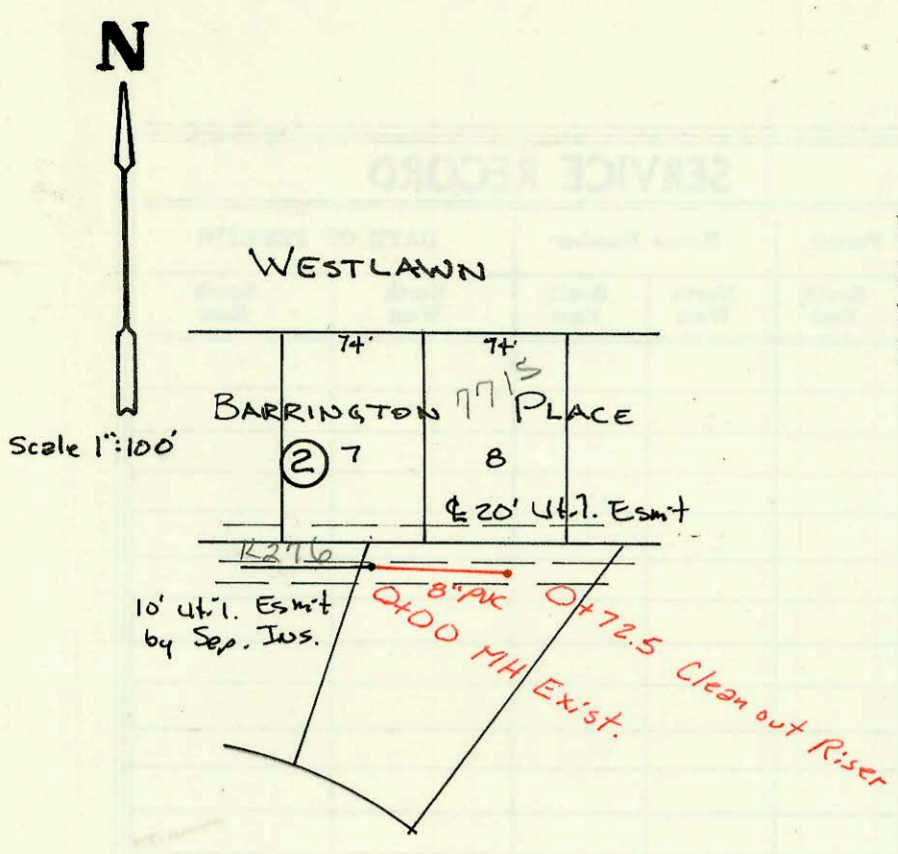 N
SERVICE RECORD
WESTLAWN
74' 74'
BARRINGTON 7715 PLACE
Scale 1":100'
2 7 8
℄ 20' Util. Esm't
K276
10' Util. Esm't
by Sep. Ins.
8" PVC
0+00 MH Exist.
0+72.5 Clean out Riser